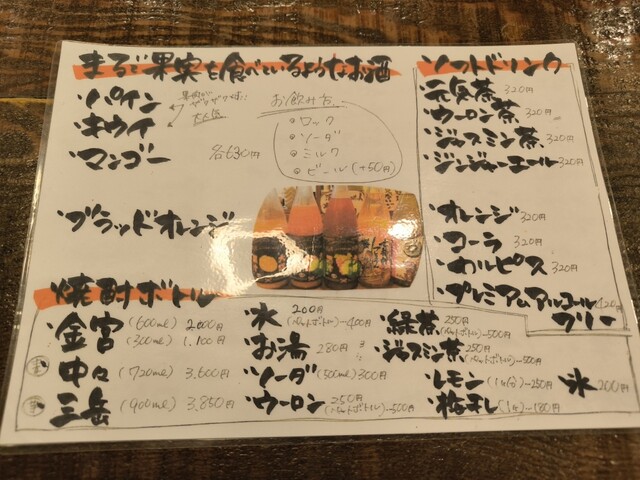 まるで果実も食べているようなお酒
・パイン
・キウイ
・マンゴー
各630円
大人気
お飲み方
・ロック
・ソーダ
・ミルク
・ビール(+50円)
・ブラッドオレンジ
ソフトドリンク
・元気茶 320円
・ウーロン茶 320円
・ジャスミン茶 320円
・ジンジャーエール 320円
・オレンジ 320円
・コーラ 320円
・カルピス 320円
・プレミアムアルコールフリー 420円
焼酎ボトル
・金宮 (600ml) 2,000円
(300ml) 1,100円
・中々 (720ml) 3,600円
・三岳 (900ml) 3,850円
・氷 200円
・お湯 280円
・ソーダ (500ml) 300円
・ウーロン 250円
(ペットボトル)…500円
・緑茶 250円
(ペットボトル)…500円
・ジャスミン茶 250円
(ペットボトル)…500円
・レモン (1ヶ分)…250円
・梅干し (1ヶ)…180円
・氷 200円